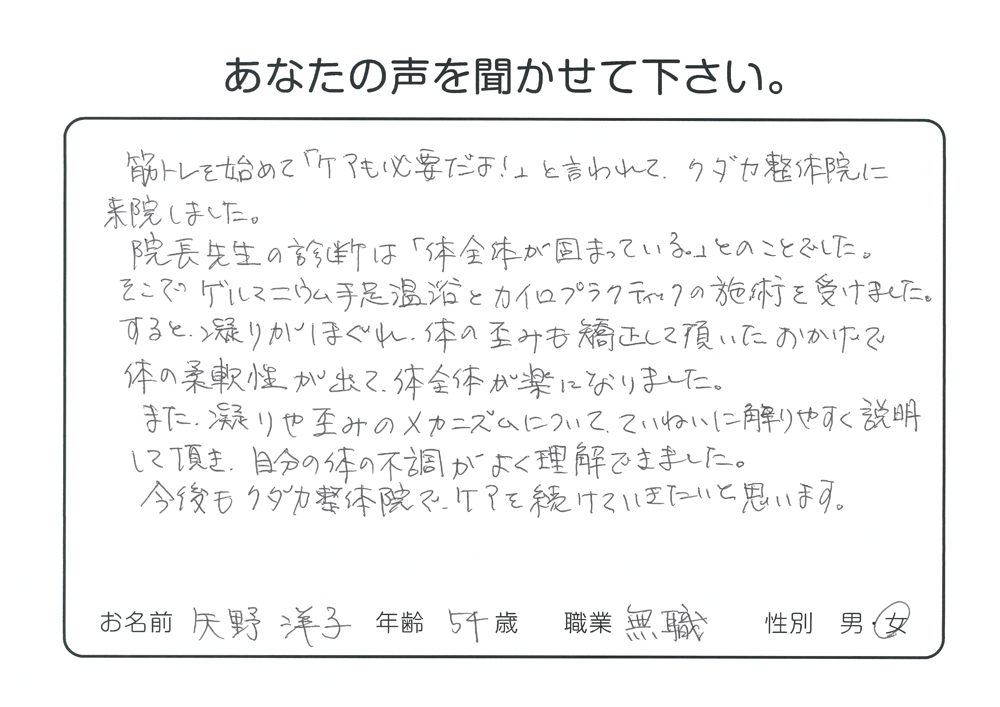 あなたの声を聞かせて下さい。
筋トレを始めて「ケアも必要だよ!」と言われて、クダカ整体院に
来院しました。
院長先生の診断は「体全体が固まっている。」とのことでした。
そこで ゲルマニウム手足温浴とカイロプラクティックの施術を受けました。
すると、凝りがほぐれ、体の歪みも矯正して頂いたおかげで
体の柔軟性が出て、体全体が楽になりました。
また、凝りや歪みのメカニズムについて、ていねいに解りやすく説明
して頂き、自分の体の不調がよく理解できました。
今後もクダカ整体院で、ケアを続けていきたいと思います。
お名前 矢野 洋子 年齢 54歳 職業 無職 性別 男・女